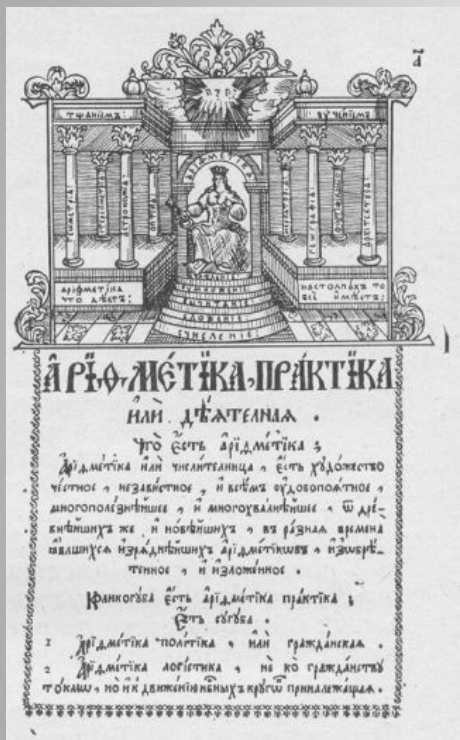 а҃
тщанїемъ:
оученїемъ
арїѳметїка
геометрїа
астрономїа
оптїка
меркаторїа
геѡграфїа
архїтектура
арїѳметїка
что дѣетъ:
на столпахъ то
всё имѣетъ:
вычитанїе
сложенїе
счисленїе
А҆РІѲМЕ́ТІКА ПРА́КТІКА
и҆лѝ дѣ́ѧтелнаѧ .
Что̀ є҆́сть а҆рїѳме́тїка ;
А҆рїѳме́тїка и҆лѝ числи́телница , є҆́сть художество
че́стное , незави́стное , и҆ всѣ̑мъ оу҆добопоѧ́тное ,
многополе́знѣйшее , и҆ многохва́лнѣйшее , ѿ дре́-
внѣйшихъ же и҆ новѣ́йшихъ , въ ра́знаѧ времена
ꙗ҆́влшихсѧ и҆зрѧ́днѣйшихъ а҆рїѳме́тїкѡвъ , и҆з̾ѡбрѣ́-
тенное , и҆ и҆зложе́нное .
Коликогу́ба є҆́сть а҆рїѳме́тїка пра́ктїка ;
Є҆́сть сугу́ба .
1 А҆рїѳме́тїка поли́тїка , и҆лѝ гражда́нскаѧ .
2 А҆рїѳме́тїка логі́стїка , не ко гражда́нству
то́кмѡ , но и҆ къ движе́нїю нб҃ныхъ кругѡ́въ принадлежащаѧ .